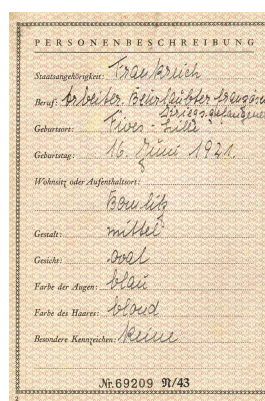 PERSONENBESCHREIBUNG
Staatsangehörigkeit: Frankreich
Beruf: Arbeiter. Beurlaubter französ.
Kriegsgefangener
Geburtsort: Fives-Lille
Geburtstag: 16. Juni 1921.
Wohnsitz oder Aufenthaltsort:
Bomlitz
Gestalt: mittel
Gesicht: oval
Farbe der Augen: blau
Farbe des Haares: blond
Besondere Kennzeichen: Keine
Nr. 69209 N/43
2